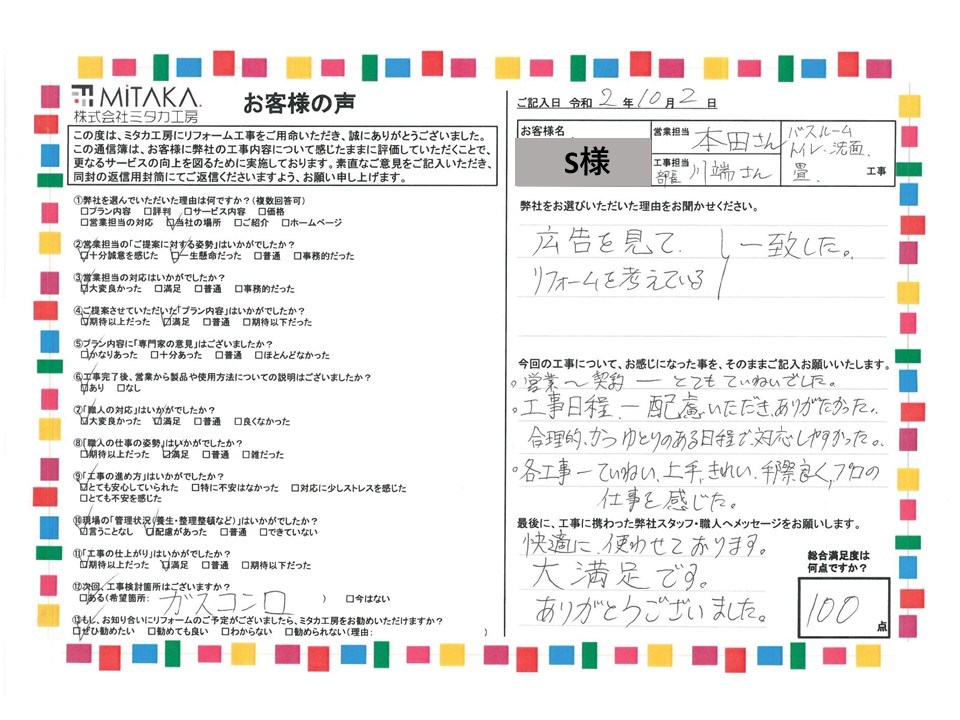 MiTAKA.
株式会社ミタカ工房
お客様の声
この度は、ミタカ工房にリフォーム工事をご用命いただき、誠にありがとうございました。
この通信簿は、お客様に弊社の工事内容について感じたままに評価していただくことで、
更なるサービスの向上を図るために実施しております。素直なご意見をご記入いただき、
同封の返信用封筒にてご返信くださいますよう、お願い申し上げます。
①弊社を選んでいただいた理由は何ですか？（複数回答可）
□プラン内容 □評判 □サービス内容 □価格
□営業担当の対応 □当社の場所 □ご紹介 □ホームページ
②営業担当の「ご提案に対する姿勢」はいかがでしたか？
□十分誠意を感じた □一生懸命だった □普通 □事務的だった
③営業担当の対応はいかがでしたか？
□大変良かった □満足 □普通 □事務的だった
④ご提案させていただいた「プラン内容」はいかがでしたか？
□期待以上だった □満足 □普通 □期待以下だった
⑤プラン内容に「専門家の意見」はございましたか？
□かなりあった □十分あった □普通 □ほとんどなかった
⑥工事完了後、営業から製品や使用方法についての説明はございましたか？
□あり □なし
⑦「職人の対応」はいかがでしたか？
□大変良かった □満足 □普通 □良くなかった
⑧「職人の仕事の姿勢」はいかがでしたか？
□期待以上だった □満足 □普通 □雑だった
⑨「工事の進め方」はいかがでしたか？
□とても安心していられた □特に不安はなかった □対応に少しストレスを感じた
□とても不安を感じた
⑩現場の「管理状況（養生・整理整頓など）」はいかがでしたか？
□言うことなし □配慮があった □普通 □できていない
⑪「工事の仕上がり」はいかがでしたか？
□期待以上だった □満足 □普通 □期待以下だった
⑫次回、工事検討箇所はございますか？
□ある（希望箇所： ガスコンロ ） □今はない
⑬もし、お知り合いにリフォームのご予定がございましたら、ミタカ工房をお勧めいただけますか？
□ぜひ勧めたい □勧めても良い □わからない □勧められない（理由： ）
ご記入日 令和 2 年 10 月 2 日
お客様名
S様
営業担当 本田さん
工事担当 部長 川端さん
バスルーム
トイレ・洗面、
畳、 工事
弊社をお選びいただいた理由をお聞かせください。
広告を見て、
リフォームを考えている
一致した。
今回の工事について、お感じになった事を、そのままご記入お願いいたします。
○営業～契約 ー とてもていねいでした。
○工事日程 ー 配慮いただき、ありがたかった。
合理的、かつゆとりのある日程で、対応しやすかった。
○各工事ーていねい、上手、きれい、手際良く、プロの
仕事を感じた。
最後に、工事に携わった弊社スタッフ・職人へメッセージをお願いします。
快適に、使わせております。
大満足です。
ありがとうございました。
総合満足度は
何点ですか？
100 点